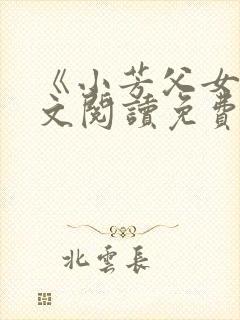 《小芳父女
文閱讀免費
北雲長